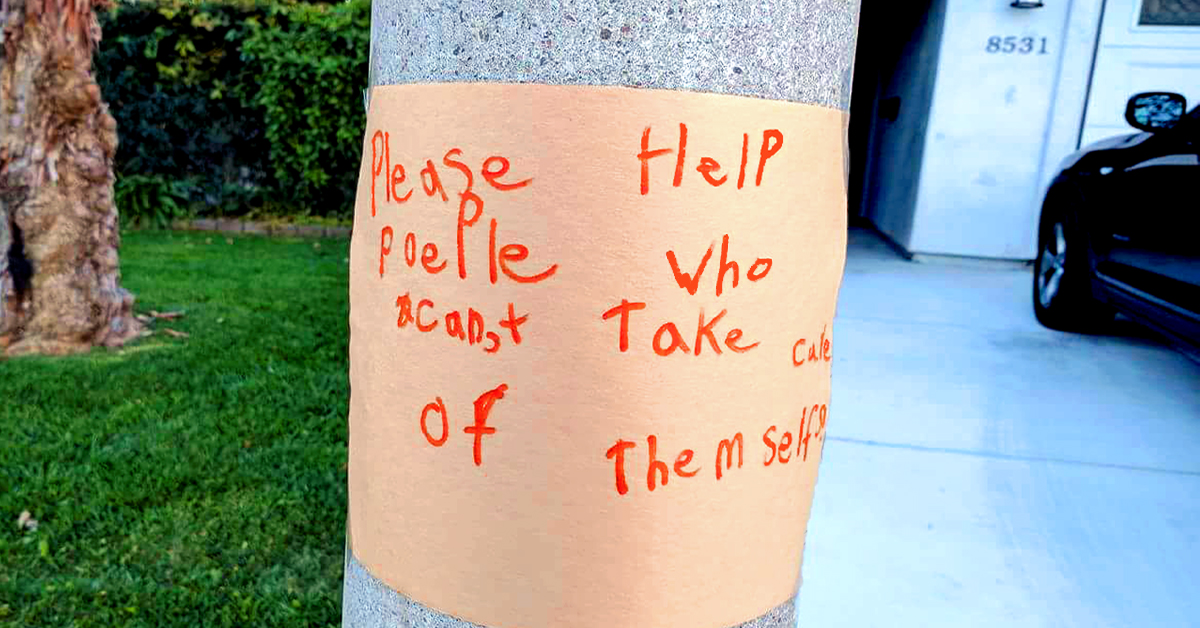 8531
Please Help
poeple who
cans,t Take care
of Themself